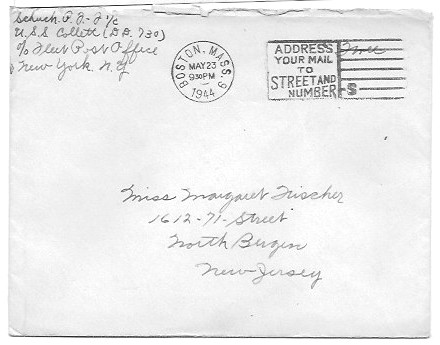 Schuch. P. J. - F 1/c
U.S.S Collett (D.D. 730)
c/o Fleet Post Office
New York. N.Y
BOSTON, MASS. 6
MAY 23
930 PM
1944
ADDRESS
YOUR MAIL
TO
STREET AND
NUMBER
Free
S
Miss Margaret Fischer
1612-71-Street
North Bergen
New-Jersey